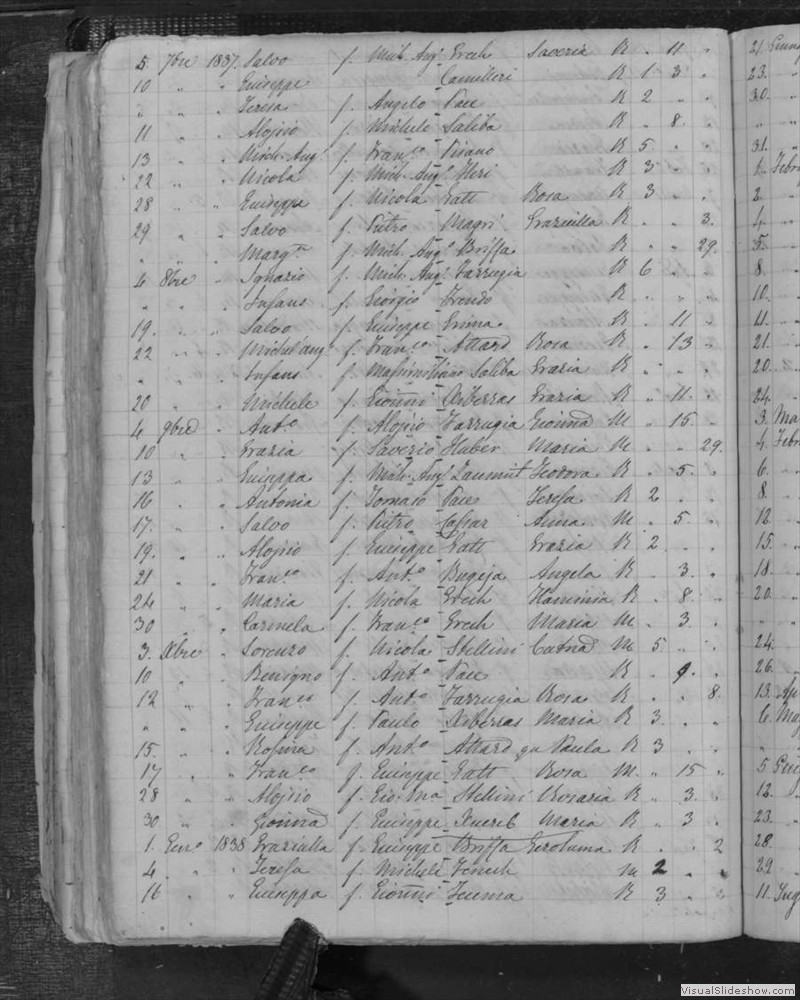 5. 7bre 1837. Salvo f. Mich. Ang.o Grech Saveria R . 11 .
10 " " Giuseppe Camilleri R 1 3 .
" " " Teresa f. Angelo Pace R 2 . .
11 " " Alojsio f. Michele Saliba R . 8 .
13 " " Mich. Ang.o f. Fran.co Pisano R 5 . .
22 " " Nicola f. Mich. Ang.o R 3 . .
28 " " Giuseppe f. Nicola Gatt Rosa R 3 . .
29 " " Salvo f. Pietro Magri Graziulla R . . 3.
" " " Marg.ta f. Mich. Ang.o Briffa R . . 29.
4 8bre " Ignazio f. Mich. Ang.o Farrugia R 6 . .
" " " Infans f. Giorgio R . . .
19. " " Salvo f. Giuseppe Grima R . 11 .
22 " " Michel'ang.o f. Fran.co Attard Rosa R . 13 .
" " " Infans f. Massimiliano Saliba Grazia R . . .
20 " " Michele f. Gionni Xiberras Grazia R . 11 .
4 9bre " Ant.o f. Alojsio Farrugia Gionna M . 15 .
10 " " Grazia f. Saverio Huber Maria M . . 29.
13 " " Giuseppa f. Mich. Ang.o Zammit Teodora R . 5 .
16 " " Antonia f. Tomaso Pace Teresa R 2 . .
17. " " Salvo f. Pietro Caffar Anna M . 5 .
19. " " Alojsio f. Giuseppe Gatt Grazia R 2 . .
21 " " Fran.co f. Ant.o Bugeja Angela R . 3 .
24 " " Maria f. Nicola Grech Flaminia R . 8 .
30 " " Carmela f. Fran.co Grech Maria M . 3 .
3. Xbre " Lorenzo f. Nicola Stellini Catna M 5 . .
10 " " Benigno f. Ant.o Pace R . 9 .
12 " " Fran.co f. Ant.o Farrugia Rosa R . . 8.
" " " Giuseppe f. Paulo Xiberras Maria R 3 . .
15. " " Rosina f. Ant.o Attard qu Paula R 3 . .
17 " " Fran.co f. Giuseppe Gatt Rosa M . 15 .
28 " " Alojsio f. Gio: Ma Stellini Rosaria R . 3 .
30 " " Gionna f. Giuseppe Xuereb Maria R . 3 .
1. Gen.o 1838 Graziulla f. Giuseppe Briffa Geroluma R . . 2
4 " " Teresa f. Michele Fenech M 2
16 " " Giuseppa f. Gionni R 3 . .
21
23.
30.
31.
2
4
5.
8.
10.
11.
21.
20.
24.
3.
4.
6.
8.
12
15.
18.
20.
24.
26.
13.
6
5
12.
23.
28.
29
11.
VisualSlideshow.com